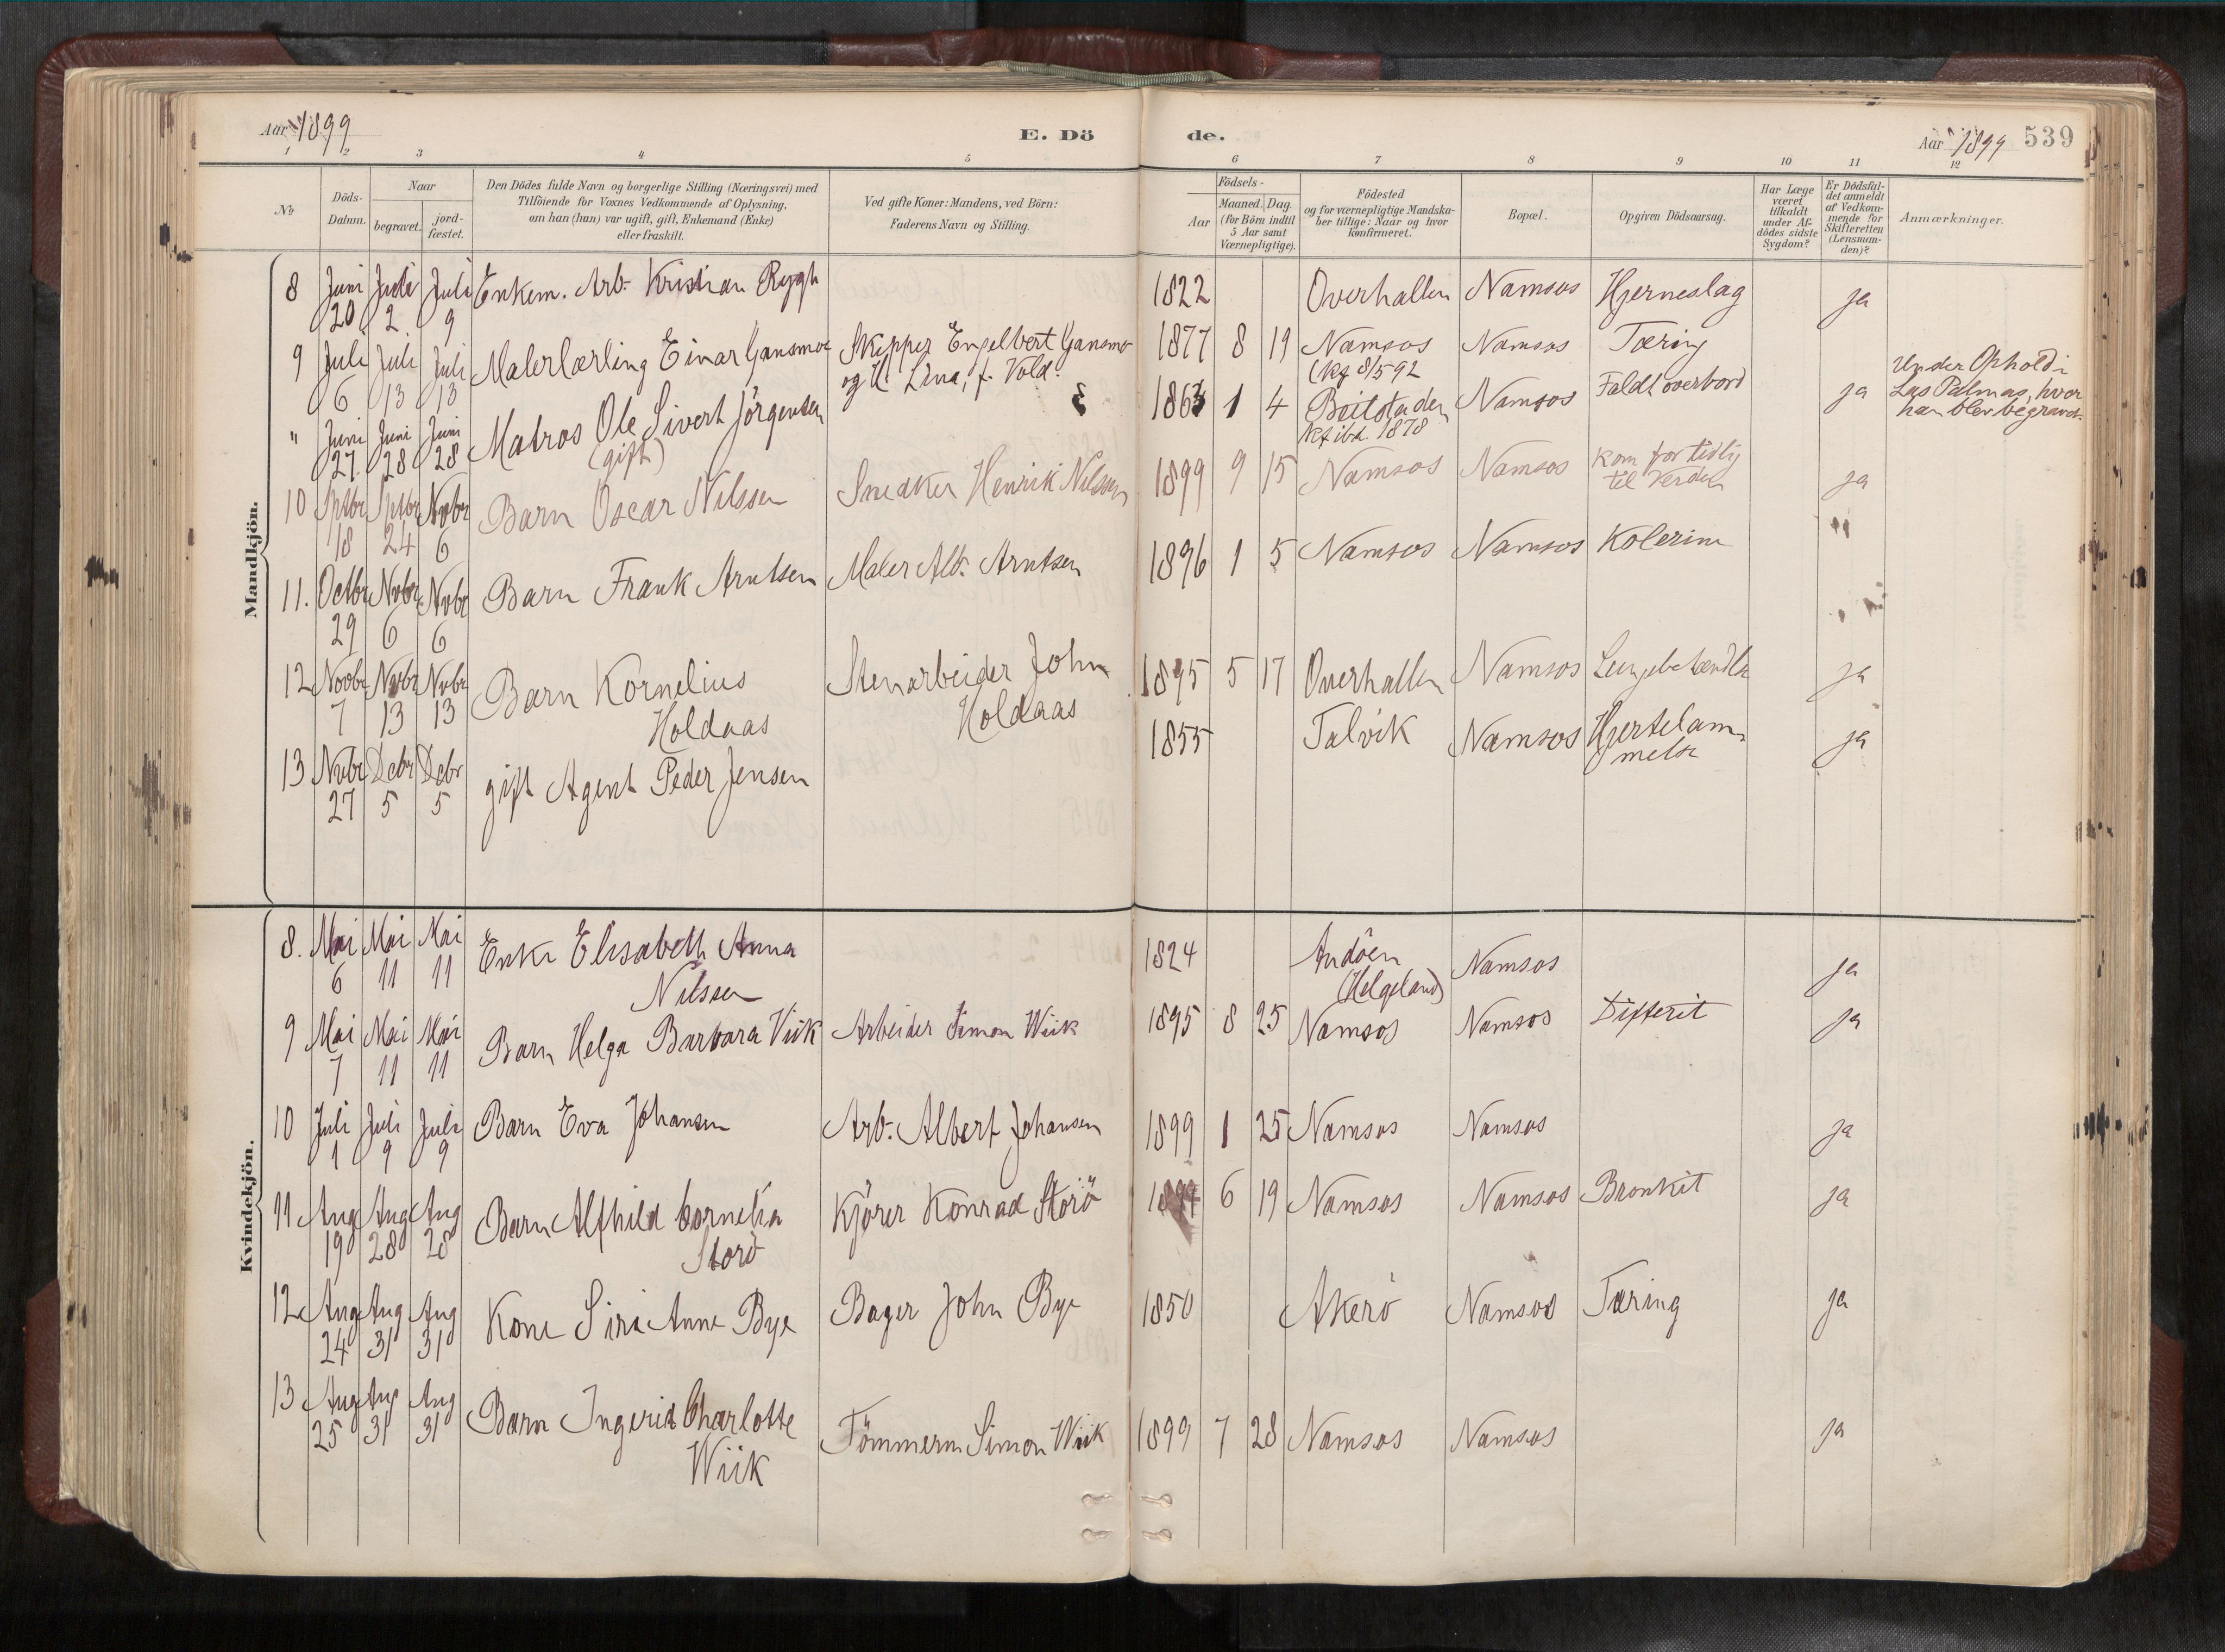 Aar 1899
E. Dö
de.
Aar 1899 539
1 2 3 4 5 6 7 8 9 10 11 12
№
Döds-
Datum.
Naar
begravet.
jord-
fæstet.
Den Dödes fulde Navn og borgerlige Stilling (Næringsvei) med
Tilföiende for Voxnes Vedkommende af Oplysning,
om han (hun) var ugift, gift, Enkemand (Enke)
eller fraskilt.
Ved gifte Koner: Mandens, ved Börn:
Faderens Navn og Stilling.
Födsels-
Aar
Maaned. Dag.
(for Börn indtil
5 Aar samt
Værnepligtige).
Födested
og for værnepligtige Mandska-
ber tillige: Naar og hvor
Konfirmeret.
Bopæl.
Opgiven Dödsaarsag.
Har Læge
været
tilkaldt
under Af-
dödes sidste
Sygdom?
Er Dödsfal-
det anmeldt
af Vedkom-
mende for
Skifteretten
(Lensman-
den)?
Anmærkninger.
Mandkjön.
8 Juni Juli Juli Enkem. Arb. Kristian Rygh 1822 Overhallen Namsos Hjerneslag ja
20 2 9
9 Juli Juli Juli Malerlærling Einar Gansmoe Skipper Engelbert Gansmo 1877 8 19 Namsos Namsos Tæring
6 13 13 og H. Lina, f. Vold. (kf 8/5 92
" Juni Juni Juni Matros Ole Sivert Jörgensen 1863 1 4 Beitstaden Namsos Faldt overbord ja Under Ophold i
27 28 28 (gift) Kf ibd. 1878 Las Palmas, hvor
han blev begravet.
10 Sptbr Sptbr Nvbr Barn Oscar Nilssen Snedker Henrik Nilssen 1899 9 15 Namsos Namsos Kom for tidlig ja
18 24 6 til Verden
11. Octbr Nvbr Nvbr Barn Frank Arntsen Maler Alb. Arntsen 1896 1 5 Namsos Namsos Kolerine "
29 6 6
12 Novbr Nvbr Nvbr Barn Kornelius Stenarbeider John 1895 5 17 Overhallen Namsos Lungebetændelse ja
7 13 13 Holdaas Holdaas
13 Nvbr Debr Debr gift Agent Peder Jensen 1855 Talvik Namsos Hjertelam- ja
27 5 5 melse
Kvindekjön.
8. Mai Mai Mai Enke Elisabeth Anna 1824 Andöen Namsos ja
6 11 11 Nilssen (Helgeland)
9 Mai Mai Mai Barn Helga Barbara Viik Arbeider Simon Wiik 1895 8 25 Namsos Namsos Difterit ja
7 11 11
10 Juli Juli Juli Barn Eva Johansen Arb. Albert Johansen 1899 1 25 Namsos Namsos ja
1 9 9
11 Aug Aug Aug Barn Alfhild Cornelia Kjörer Konrad Storö 6 19 Namsos Namsos Bronkit ja
19 28 28 Storö
12 Aug Aug Aug Kone Siri Anne Bye Bager John Bye 1850 Akerö Namsos Tæring ja
24 31 31
13 Aug Aug Aug Barn Ingerid Charlotte Tömmerm Simon Wiik 1899 7 28 Namsos Namsos ja
25 31 31 Wiik